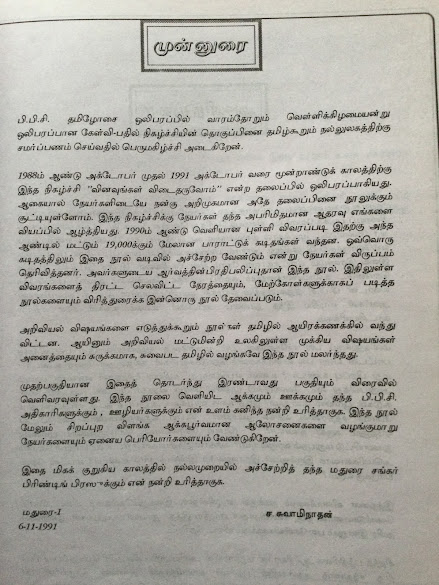 முன்னுரை
பி.பி.சி. தமிழோசை ஒலிபரப்பில் வாரம்தோறும் வெள்ளிக்கிழமையன்று
ஒலிபரப்பான கேள்வி-பதில் நிகழ்ச்சியின் தொகுப்பினை தமிழ்கூறும் நல்லுலகத்திற்கு
சமர்ப்பணம் செய்வதில் பெருமகிழ்ச்சி அடைகிறேன்.
1988ம் ஆண்டு அக்டோபர் முதல் 1991 அக்டோபர் வரை மூன்றாண்டுக் காலத்திற்கு
இந்த நிகழ்ச்சி "வினவுங்கள் விடைதருவோம்" என்ற தலைப்பில் ஒலிபரப்பாகியது.
ஆகையால் நேயர்களிடையே நன்கு அறிமுகமான அதே தலைப்பினை நூலுக்கும்
சூட்டியுள்ளோம். இந்த நிகழ்ச்சிக்கு நேயர்கள் தந்த அபரிமிதமான ஆதரவு எங்களை
வியப்பில் ஆழ்த்தியது. 1990ம் ஆண்டு வெளியான புள்ளி விவரப்படி இதற்கு அந்த
ஆண்டில் மட்டும் 19,000க்கும் மேலான பாராட்டுக் கடிதங்கள் வந்தன. ஒவ்வொரு
கடிதத்திலும் இதை நூல் வடிவில் அச்சேற்ற வேண்டும் என்று நேயர்கள் விருப்பம்
தெரிவித்தனர். அவர்களுடைய ஆர்வத்தின்பிரதிபலிப்புதான் இந்த நூல். இதிலுள்ள
விவரங்களைத் திரட்ட செலவிட்ட நேரத்தையும், மேற்கோள்களுக்காகப் படித்த
நூல்களையும் விரித்துரைக்க இன்னொரு நூல் தேவைப்படும்.
அறிவியல் விஷயங்களை எடுத்துக்கூறும் நூல்கள் தமிழில் ஆயிரக்கணக்கில் வந்து
விட்டன. ஆயினும் அறிவியல் மட்டுமின்றி உலகிலுள்ள முக்கிய விஷயங்கள்
அனைத்தையும் சுருக்கமாக, சுவைபட தமிழில் வழங்கவே இந்த நூல் மலர்ந்தது.
முதற்பகுதியான இதைத் தொடர்ந்து இரண்டாவது பகுதியும் விரைவில்
வெளிவரவுள்ளது. இந்த நூலை வெளியிட ஆக்கமும் ஊக்கமும் தந்த பி.பி.சி.
அதிகாரிகளுக்கும் , ஊழியர்களுக்கும் என் உளம் கனிந்த நன்றி உரித்தாகுக. இந்த நூல்
மேலும் சிறப்புற விளங்க ஆக்கபூர்வமான ஆலோசனைகளை வழங்குமாறு
நேயர்களையும் ஏனைய பெரியோர்களையும் வேண்டுகிறேன்.
இதை மிகக் குறுகிய காலத்தில் நல்லமுறையில் அச்சேற்றித் தந்த மதுரை சங்கர்
பிரிண்டிங் பிரஸுக்கும் என் நன்றி உரித்தாகுக.
மதுரை-1 ச. சுவாமிநாதன்
6-11-1991